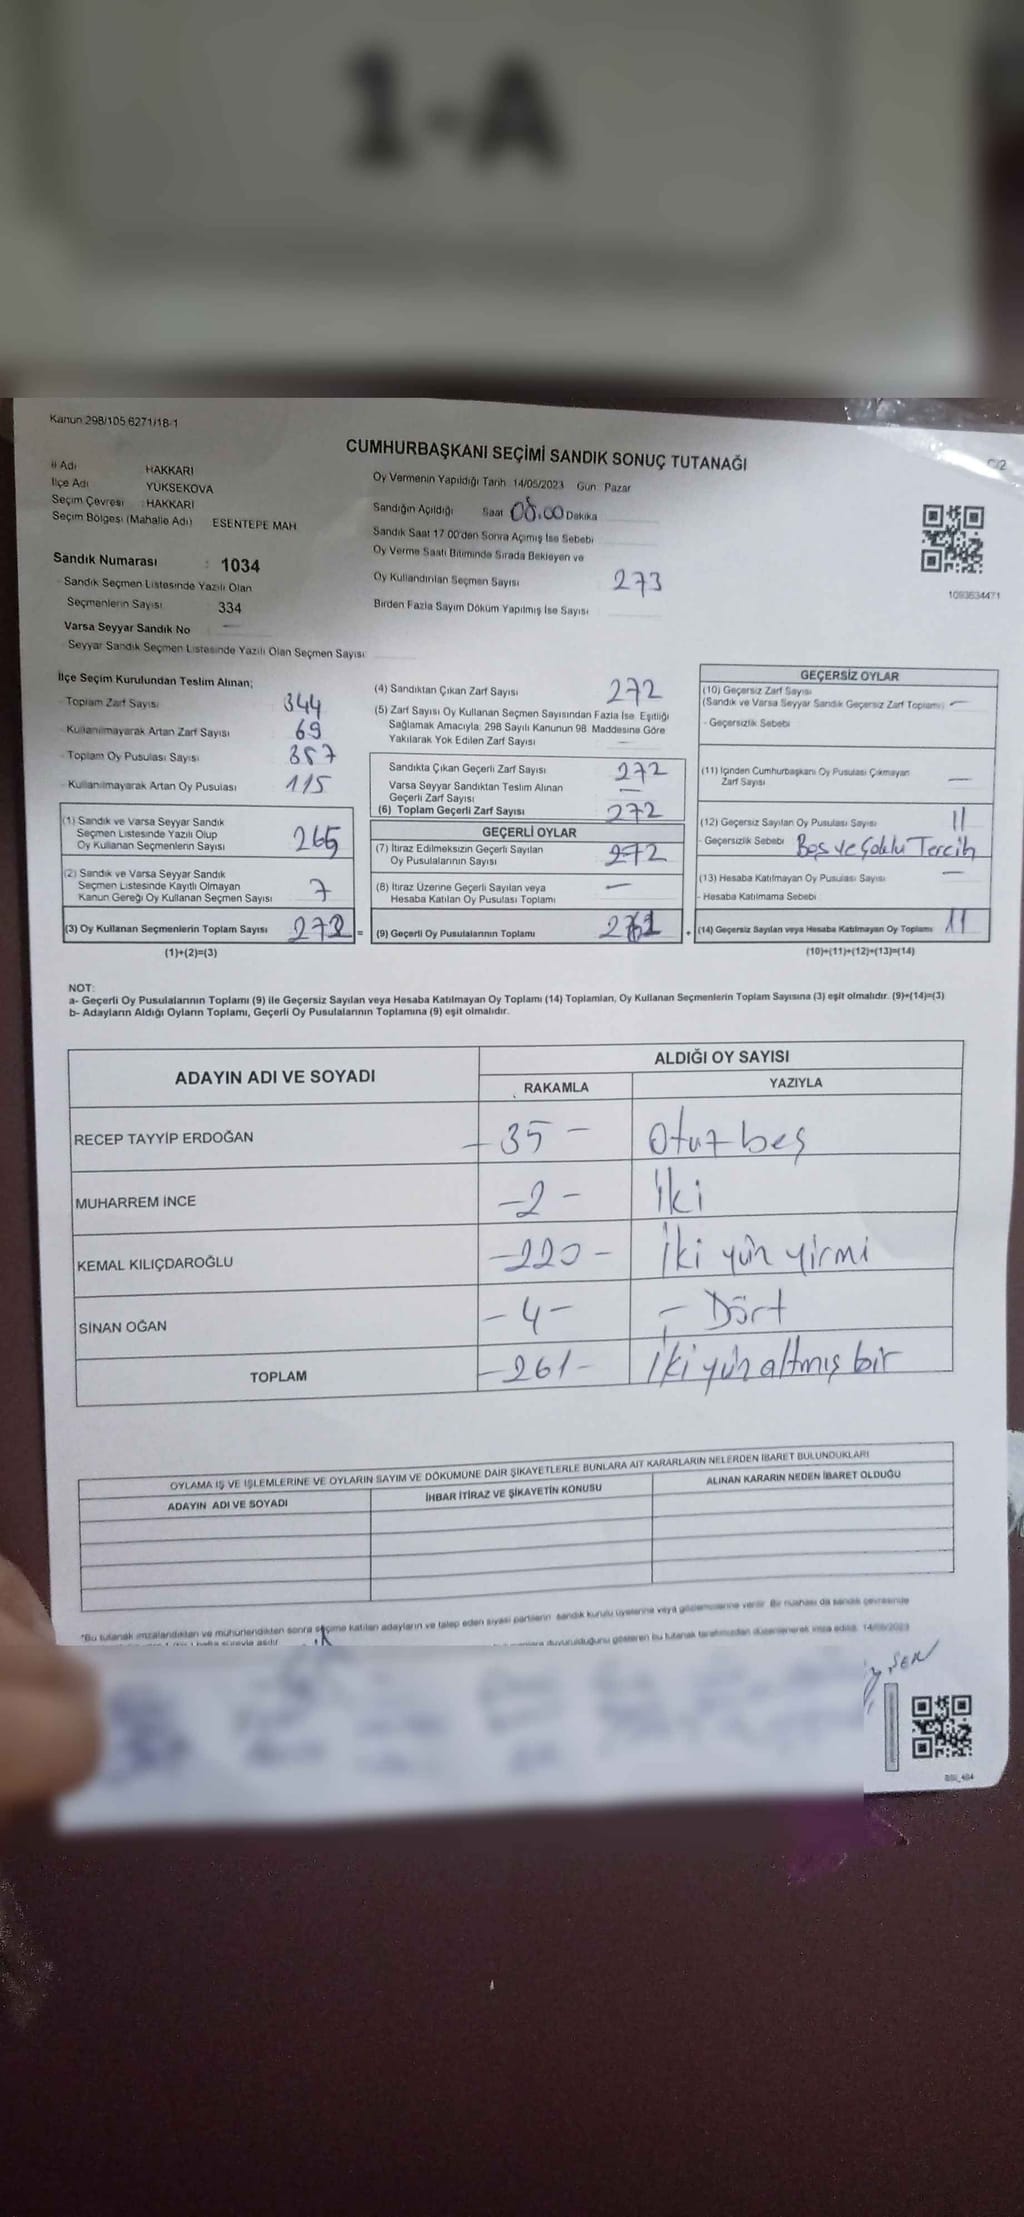 1-A
Kanun 298/105 6271/18-1
CUMHURBAŞKANI SEÇİMİ SANDIK SONUÇ TUTANAĞI
C/2
İl Adı HAKKARİ
İlçe Adı YÜKSEKOVA
Seçim Çevresi : HAKKARİ
Seçim Bölgesi (Mahalle Adı) ESENTEPE MAH
Sandık Numarası : 1034
- Sandık Seçmen Listesinde Yazılı Olan
Seçmenlerin Sayısı 334
Varsa Seyyar Sandık No —
- Seyyar Sandık Seçmen Listesinde Yazılı Olan Seçmen Sayısı
Oy Vermenin Yapıldığı Tarih 14/05/2023 Gün Pazar
Sandığın Açıldığı Saat 08.00 Dakika
Sandık Saat 17:00'den Sonra Açmış İse Sebebi
Oy Verme Saati Bitiminde Sırada Bekleyen ve
Oy Kullandırılan Seçmen Sayısı 273
Birden Fazla Sayım Döküm Yapılmış İse Sayısı
1093634471
İlçe Seçim Kurulundan Teslim Alınan;
- Toplam Zarf Sayısı 344
- Kullanılmayarak Artan Zarf Sayısı 69
- Toplam Oy Pusulası Sayısı 387
- Kullanılmayarak Artan Oy Pusulası 115
(1) Sandık ve Varsa Seyyar Sandık
Seçmen Listesinde Yazılı Olup
Oy Kullanan Seçmenlerin Sayısı 265
(2) Sandık ve Varsa Seyyar Sandık
Seçmen Listesinde Kayıtlı Olmayan
Kanun Gereği Oy Kullanan Seçmen Sayısı 7
(3) Oy Kullanan Seçmenlerin Toplam Sayısı 272 =
(1)+(2)=(3)
(4) Sandıktan Çıkan Zarf Sayısı 272
(5) Zarf Sayısı Oy Kullanan Seçmen Sayısından Fazla İse Eşitliği
Sağlamak Amacıyla 298 Sayılı Kanunun 98. Maddesine Göre
Yakılarak Yok Edilen Zarf Sayısı —
Sandıkta Çıkan Geçerli Zarf Sayısı 272
Varsa Seyyar Sandıktan Teslim Alınan
Geçerli Zarf Sayısı —
(6) Toplam Geçerli Zarf Sayısı 272
GEÇERLİ OYLAR
(7) İtiraz Edilmeksizin Geçerli Sayılan
Oy Pusulalarının Sayısı 272
(8) İtiraz Üzerine Geçerli Sayılan veya
Hesaba Katılan Oy Pusulası Toplamı —
(9) Geçerli Oy Pusulalarının Toplamı 261 +
GEÇERSİZ OYLAR
(10) Geçersiz Zarf Sayısı
(Sandık ve Varsa Seyyar Sandık Geçersiz Zarf Toplamı) —
- Geçersizlik Sebebi
(11) İçinden Cumhurbaşkanı Oy Pusulası Çıkmayan
Zarf Sayısı —
(12) Geçersiz Sayılan Oy Pusulası Sayısı 11
- Geçersizlik Sebebi Boş ve Çoklu Tercih
(13) Hesaba Katılmayan Oy Pusulası Sayısı —
- Hesaba Katılmama Sebebi
(14) Geçersiz Sayılan veya Hesaba Katılmayan Oy Toplamı 11
(10)+(11)+(12)+(13)=(14)
NOT:
a- Geçerli Oy Pusulalarının Toplamı (9) ile Geçersiz Sayılan veya Hesaba Katılmayan Oy Toplamı (14) Toplamları, Oy Kullanan Seçmenlerin Toplam Sayısına (3) eşit olmalıdır. (9)+(14)=(3)
b- Adayların Aldığı Oyların Toplamı, Geçerli Oy Pusulalarının Toplamına (9) eşit olmalıdır.
ADAYIN ADI VE SOYADI ALDIĞI OY SAYISI
RAKAMLA YAZIYLA
RECEP TAYYİP ERDOĞAN - 35 - Otuz beş
MUHARREM İNCE - 2 - İki
KEMAL KILIÇDAROĞLU - 220 - İki yüz yirmi
SİNAN OĞAN - 4 - - Dört
TOPLAM - 261 - İki yüz altmış bir
OYLAMA İŞ VE İŞLEMLERİNE VE OYLARIN SAYIM VE DÖKÜMÜNE DAİR ŞİKAYETLERLE BUNLARA AİT KARARLARIN NELERDEN İBARET BULUNDUKLARI
ADAYIN ADI VE SOYADI İHBAR İTİRAZ VE ŞİKAYETİN KONUSU ALINAN KARARIN NEDEN İBARET OLDUĞU
*Bu tutanak imzalandıktan ve mühürlendikten sonra seçime katılan adayların ve talep eden siyasi partilerin sandık kurulu üyelerine veya gözlemcilerine verilir. Bir nüshası da sandık çevresinde
duyurulduğunu gösteren bu tutanak tarafımızdan düzenlenerek imza edildi. 14/05/2023
ŞEN